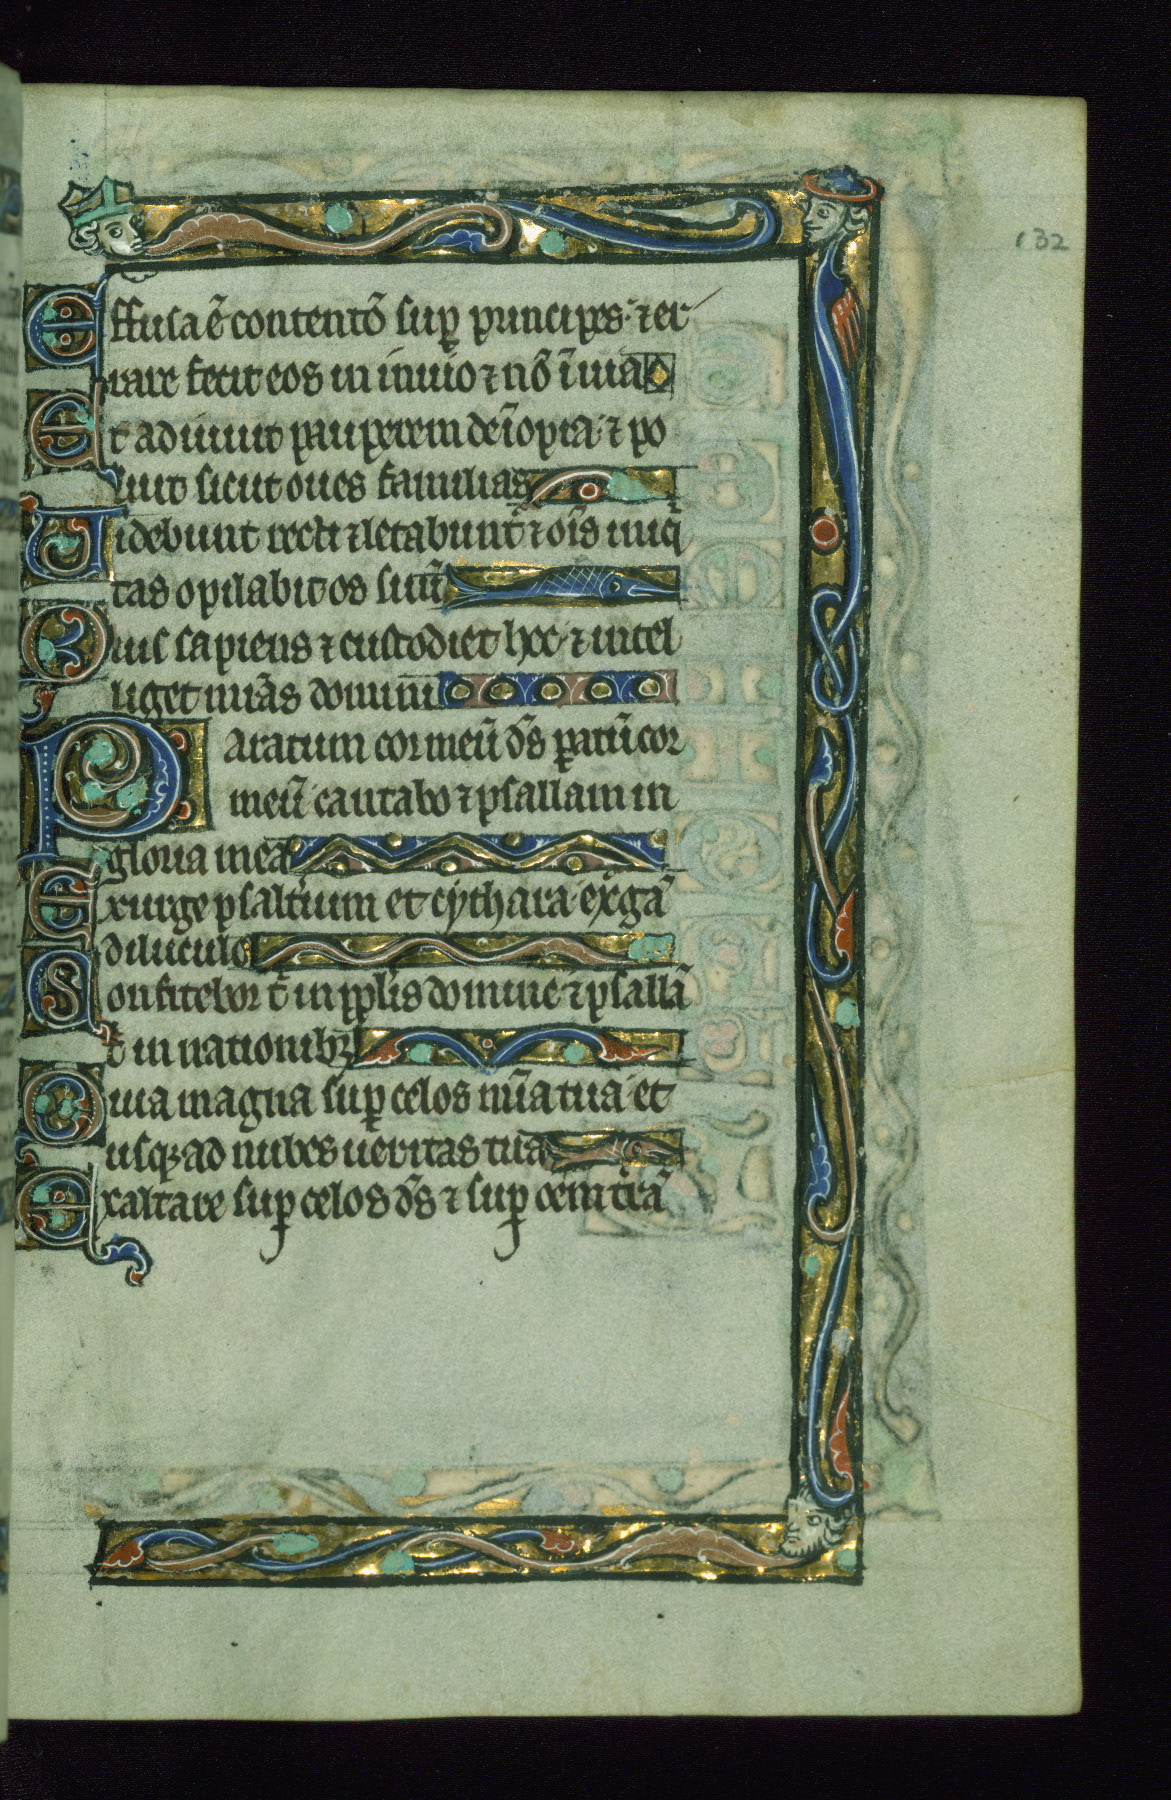 132
Effusa ē contentō sup̱ principes · ⁊ er
rare fecit eos in inuio ⁊ nō ī uia
Et adiuuit pauperem de īopia · ⁊ po
suit sicut oues familias
Uidebunt recti ⁊ letabunt᷑ ⁊ oīs iniq̇
tas opilabit os suū
Quis sapiens ⁊ custodiet hec · ⁊ intel
liget mīas domini
Paratum cor meū d̄s paratū cor
meū · cantabo ⁊ psallam in
gloria mea
Exurge psaltium et cythara · exgā
diluculo
Confitebor t̄ in pp̄lis domine · ⁊ psallā
t̄ in nationibꝫ
Quia magna sup̱ celos mīa tua · et
usqꝫ ad nubes ueritas tua
Exaltare sup̱ celos d̄s ⁊ sup̱ oem̄ t̄rā